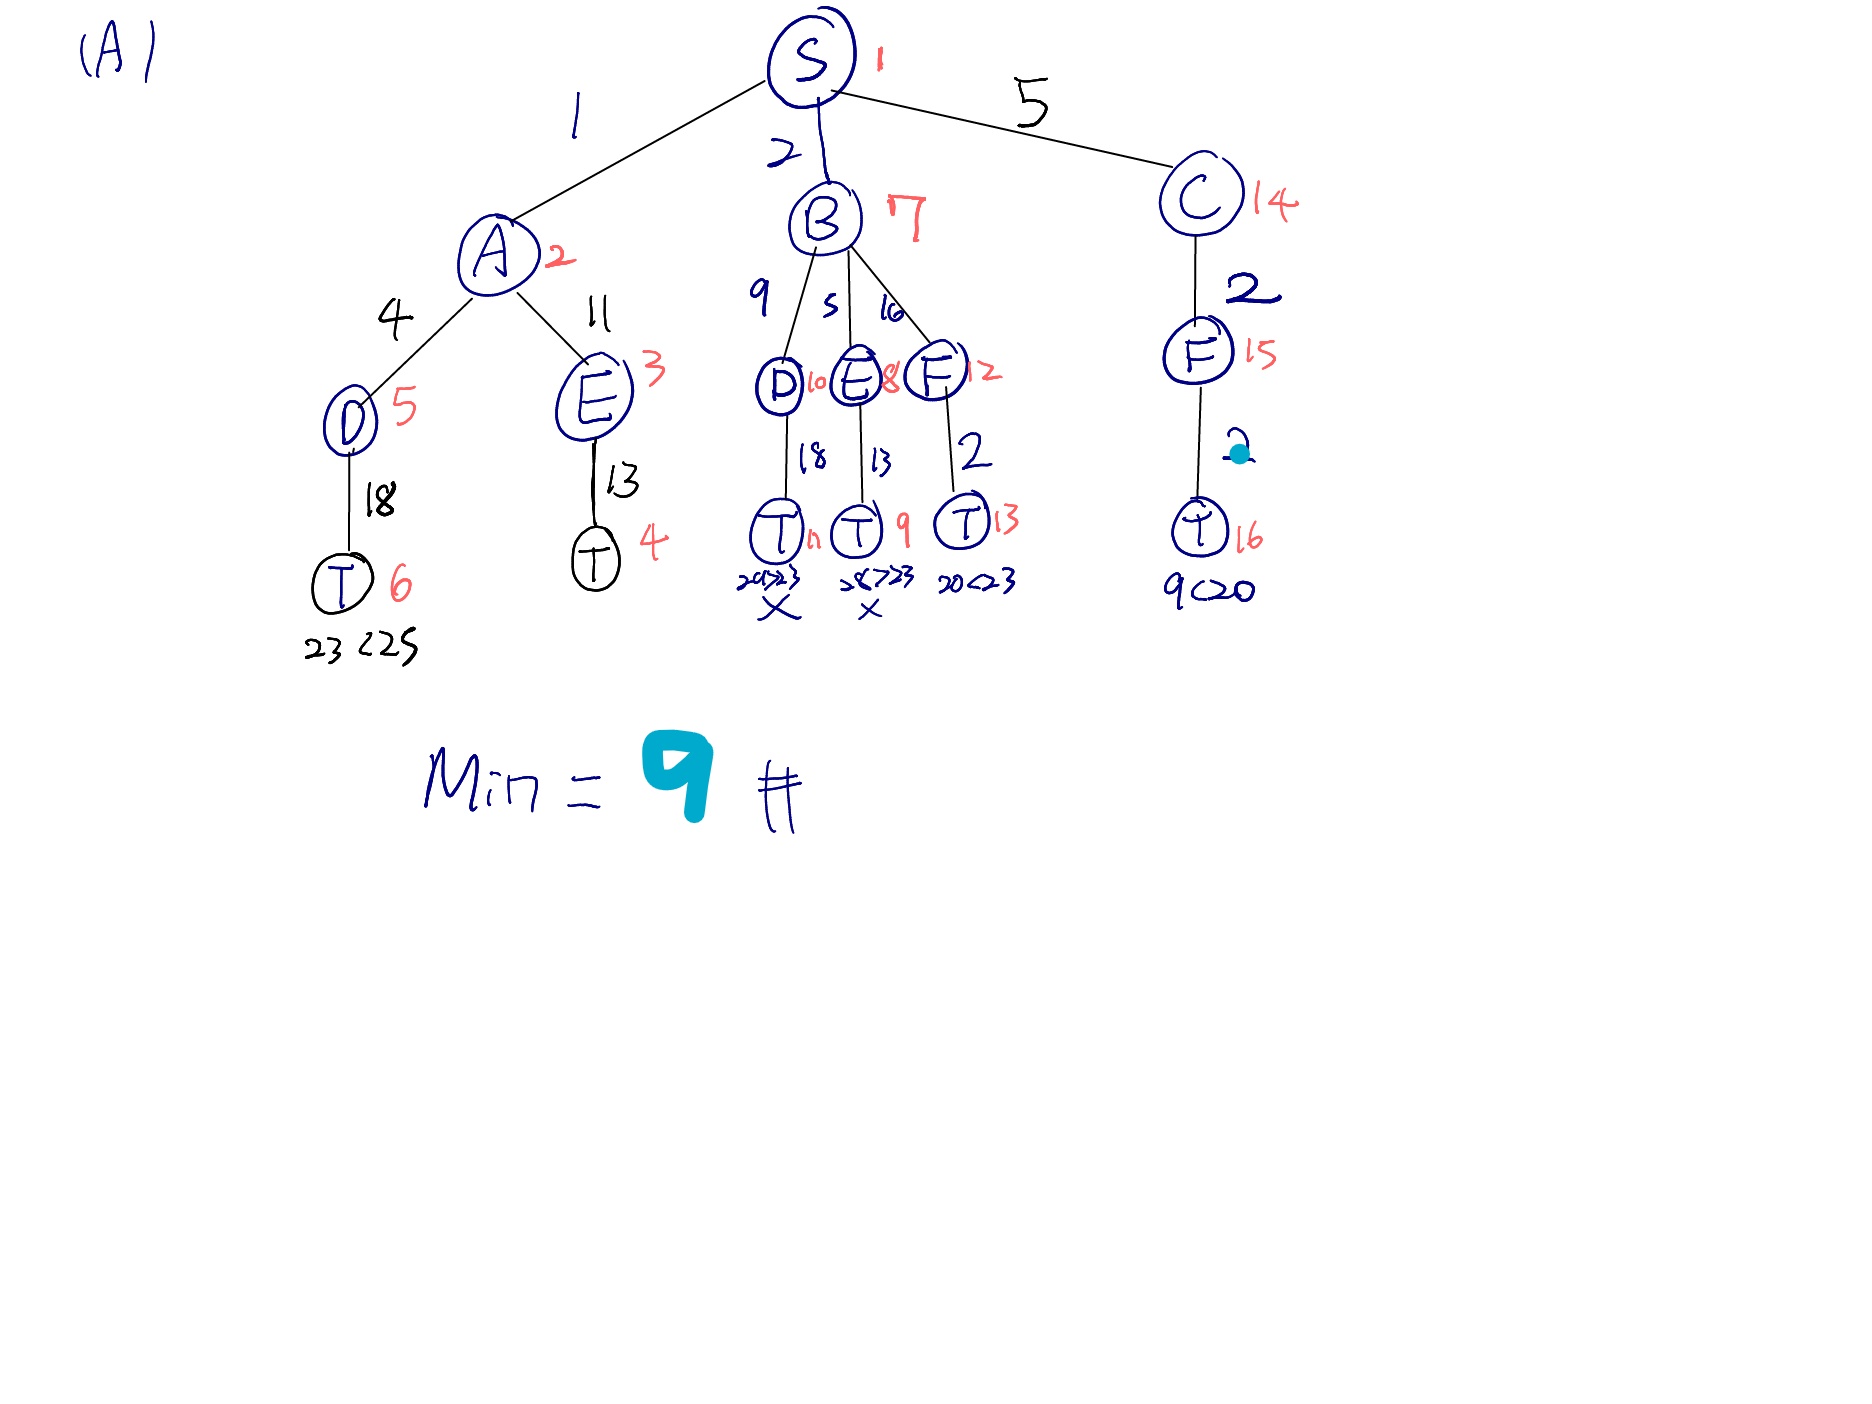 (A)
S 1
1 2 5
A 2 B 7 C 14
4 11 9 5 16 2
D 5 E 3 D 10 E 8 F 12 F 15
18 13 18 13 2 2
T 6 T 4 T 11 T 9 T 13 T 16
23<25 29>23 28>23 20<23 9<20
X X
Min = 9 #